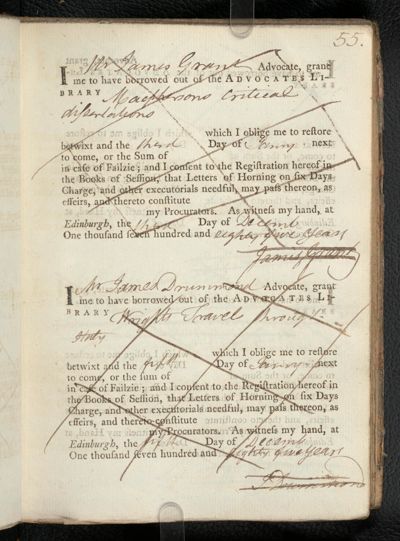 55.
I Mr James Grant Advocate, grant
me to have borrowed out of the ADVOCATES LI-
BRARY Macphersons Critical
dissertations
which I oblige me to restore
betwixt and the third Day of Janry next
to come, or the Sum of
in case of Failzie; and I consent to the Registration hereof in
the Books of Session, that Letters of Horning on six Days
Charge, and other executorials needful, may pass thereon, as
effeirs, and thereto constitute
my Procurators. As witness my hand, at
Edinburgh, the third Day of Decemb
One thousand seven hundred and eighty five years
James Grant
I Mr James Drummond Advocate, grant
me to have borrowed out of the ADVOCATES LI-
BRARY Wrights Travel through
which I oblige me to restore
betwixt and the fifth Day of Janry next
to come, or the sum of
in case of Failzie; and I consent to the Registration hereof in
the Books of Session, that Letters of Horning on six Days
Charge, and other executorials needful, may pass thereon, as
effeirs, and thereto constitute
my Procurators. As witness my hand, at
Edinburgh, the fifth Day of Decemb
One thousand seven hundred and eighty five years
J Drummond